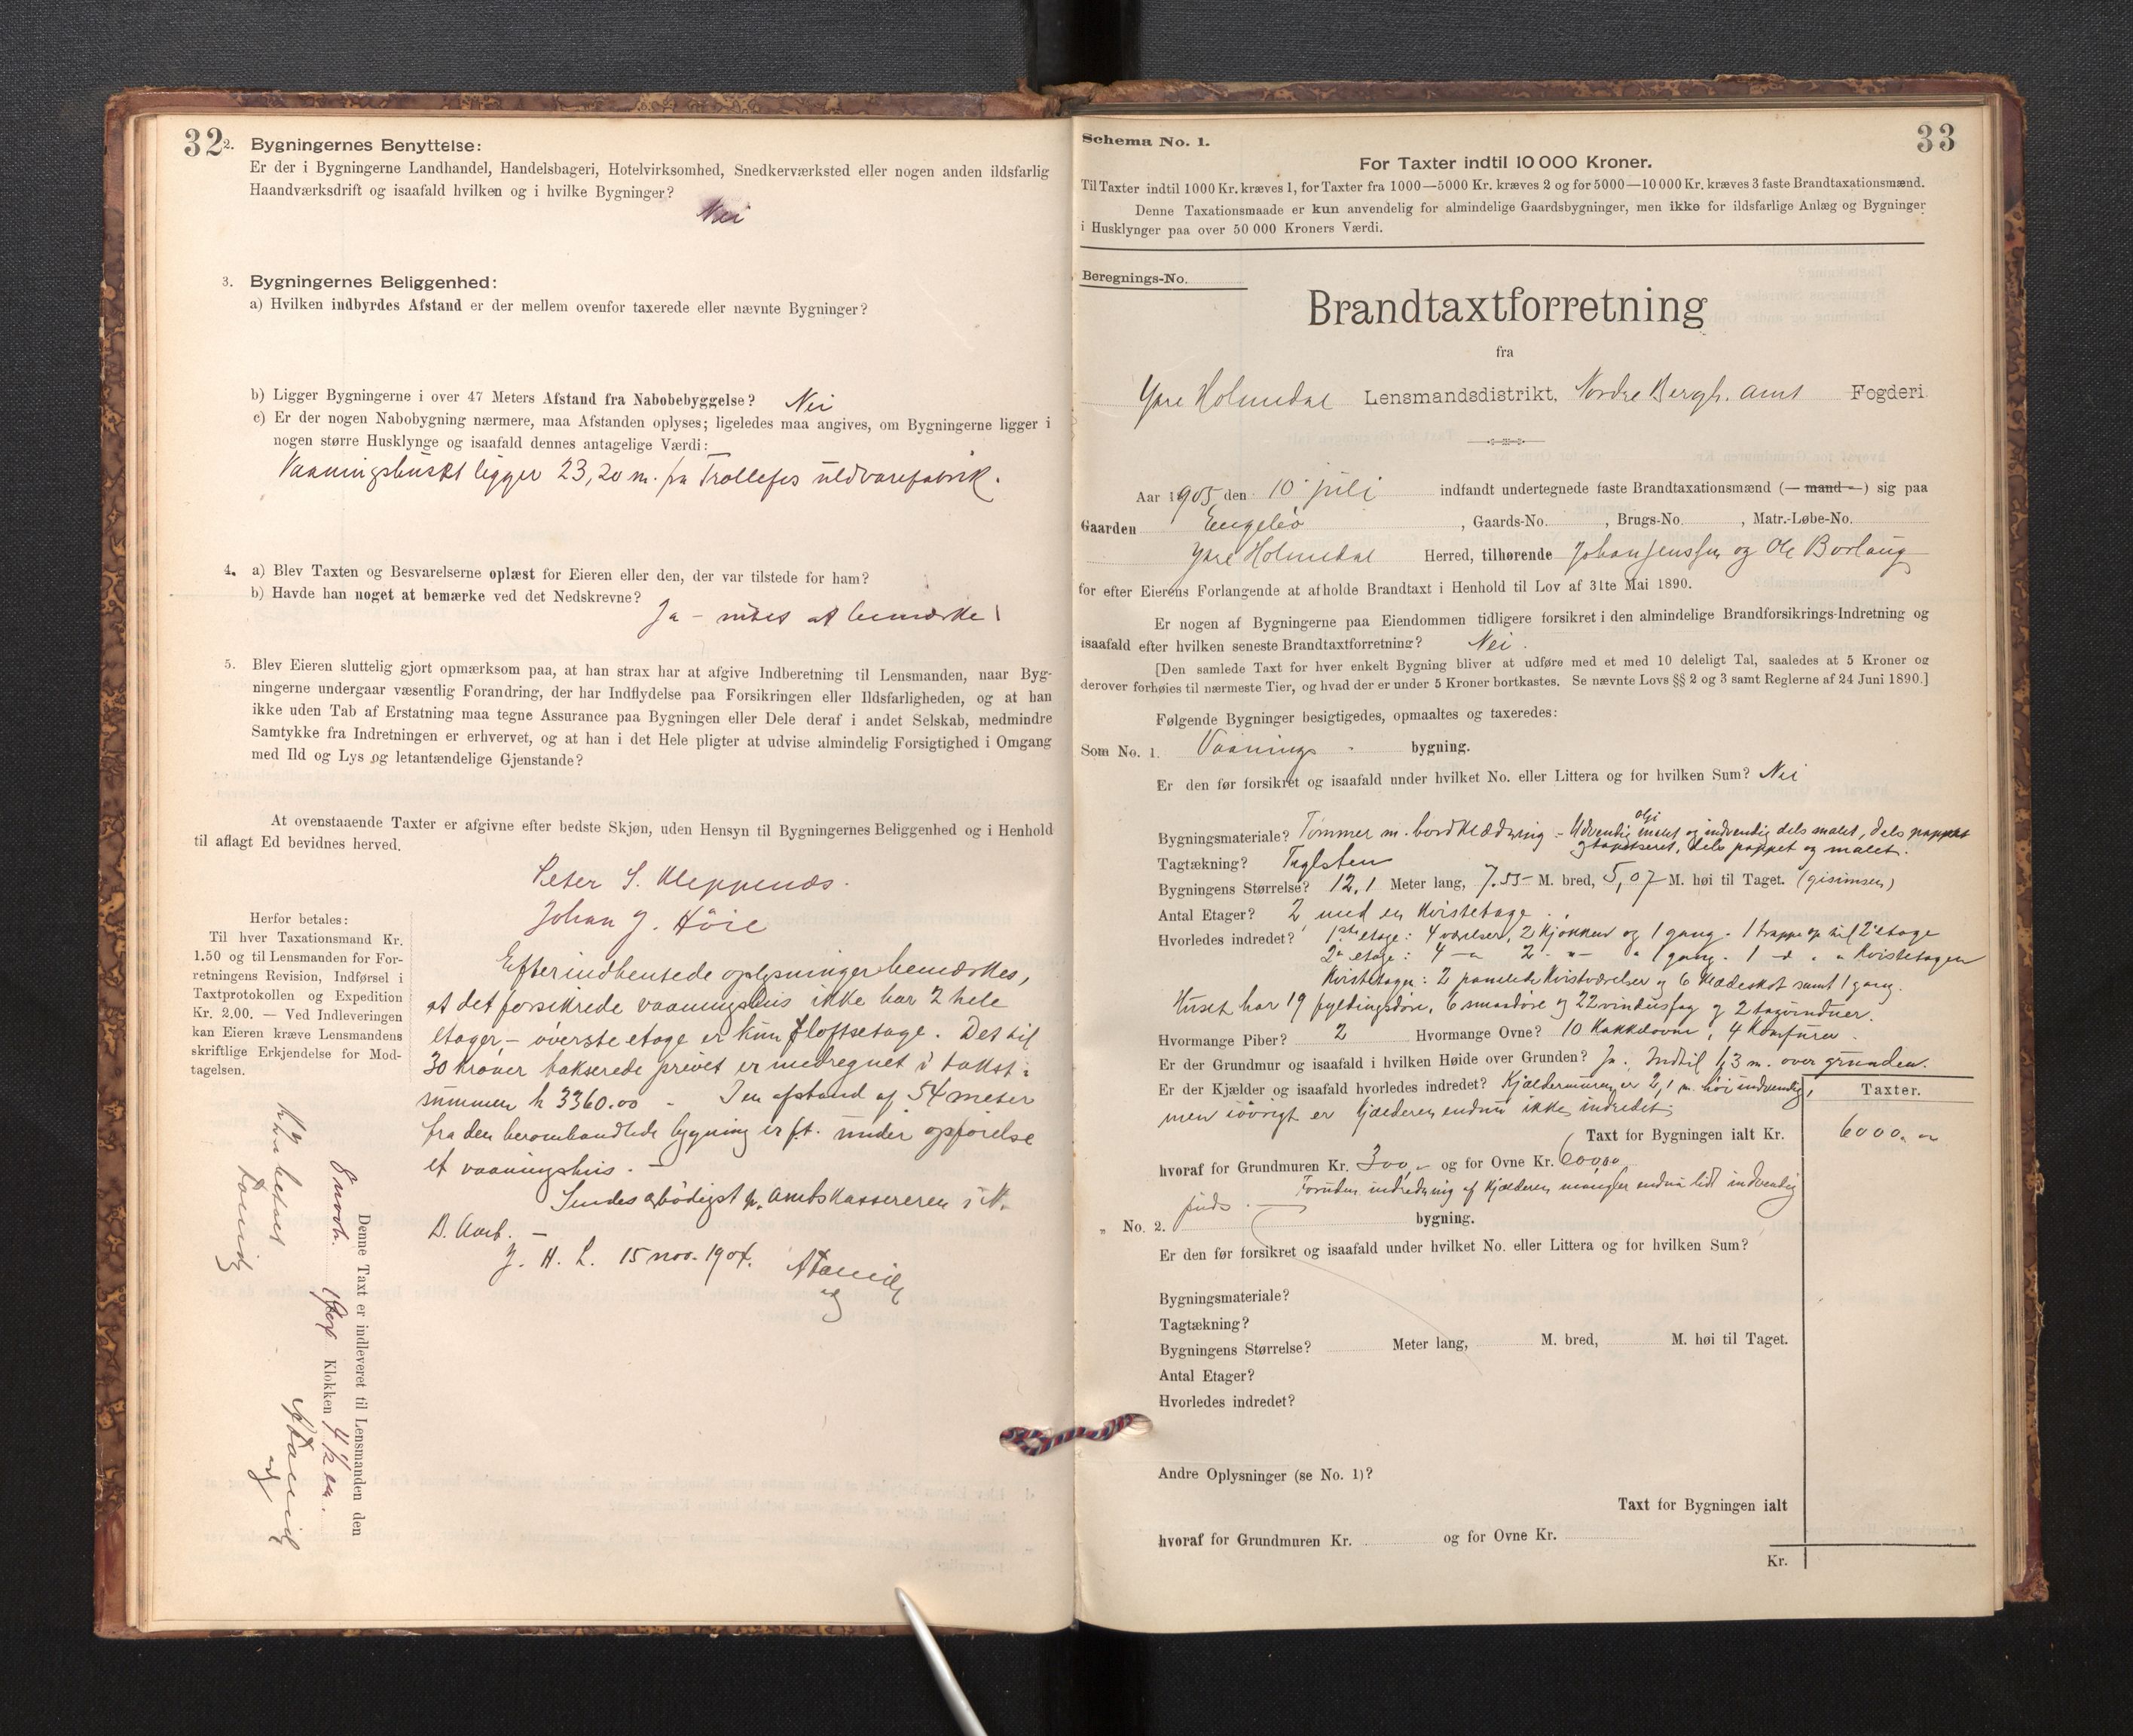 32
2. Bygningernes Benyttelse:
Er der i Bygningerne Landhandel, Handelsbageri, Hotelvirksomhed, Snedkerværksted eller nogen anden ildsfarlig
Haandværksdrift og isaafald hvilken og i hvilke Bygninger?
Nei
3. Bygningernes Beliggenhed:
a) Hvilken indbyrdes Afstand er der mellem ovenfor taxerede eller nævnte Bygninger?
b) Ligger Bygningerne i over 47 Meters Afstand fra Nabobebyggelse? Nei
c) Er der nogen Nabobygning nærmere, maa Afstanden oplyses; ligeledes maa angives, om Bygningerne ligger i
nogen større Husklynge og isaafald dennes antagelige Værdi:
Vaaningshuset ligger 23,20 m. fra Trollefos uldvarefabrik.
4. a) Blev Taxten og Besvarelserne oplæst for Eieren eller den, der var tilstede for ham?
b) Havde han noget at bemærke ved det Nedskrevne?
Ja – intet at bemærke
5. Blev Eieren sluttelig gjort opmærksom paa, at han strax har at afgive Indberetning til Lensmanden, naar Byg-
ningerne undergaar væsentlig Forandring, der har Indflydelse paa Forsikringen eller Ildsfarligheden, og at han
ikke uden Tab af Erstatning maa tegne Assurance paa Bygningen eller Dele deraf i andet Selskab, medmindre
Samtykke fra Indretningen er erhvervet, og at han i det Hele pligter at udvise almindelig Forsigtighed i Omgang
med Ild og Lys og letantændelige Gjenstande?
At ovenstaaende Taxter er afgivne efter bedste Skjøn, uden Hensyn til Bygningernes Beliggenhed og i Henhold
til aflagt Ed bevidnes herved.
Peter S. Kleppenæs.
Johan J. Höie
Herfor betales:
Til hver Taxationsmand Kr.
1.50 og til Lensmanden for For-
retningens Revision, Indførsel i
Taxtprotokollen og Expedition
Kr. 2.00. — Ved Indleveringen
kan Eieren kræve Lensmandens
skriftlige Erkjendelse for Mod-
tagelsen.
Efter indhentede oplysninger bemærkes,
at det forsikrede vaaningshus ikke har 2 hele
etager, – øverste etage er kun loftsetage. Det til
30 kroner takserede privet er medregnet i takst-
summen kr 3360.00 – I en afstand af 54 meter
fra den heromhandlede bygning er f.t. under opførelse
et vaaningshus. –
Sendes ærbödigst hr. Amtskassereren i N.
B. Amt. –
Y. H. L. 15 nov. 1904.
Denne Taxt er indleveret til Lensmanden den
8 novbr. 1904 Klokken 4 ½ em.
betalt
33
Schema No. 1.
For Taxter indtil 10 000 Kroner.
Til Taxter indtil 1000 Kr. kræves 1, for Taxter fra 1000—5000 Kr. kræves 2 og for 5000—10 000 Kr. kræves 3 faste Brandtaxationsmænd.
Denne Taxationsmaade er kun anvendelig for almindelige Gaardsbygninger, men ikke for ildsfarlige Anlæg og Bygninger
i Husklynger paa over 50 000 Kroners Værdi.
Beregnings-No.
Brandtaxtforretning
fra
Ytre Holmedal Lensmandsdistrikt, Nordre Bergh. amt Fogderi
Aar 1905 den 10 juli indfandt undertegnede faste Brandtaxationsmænd (— mand —) sig paa
Gaarden Engebö, Gaards-No. , Brugs-No. , Matr.-Løbe-No.
Ytre Holmedal Herred, tilhørende Johan Jenssen og Ole Borlaug
for efter Eierens Forlangende at afholde Brandtaxt i Henhold til Lov af 31te Mai 1890.
Er nogen af Bygningerne paa Eiendommen tidligere forsikret i den almindelige Brandforsikrings-Indretning og
isaafald efter hvilken seneste Brandtaxtforretning? Nei.
[Den samlede Taxt for hver enkelt Bygning bliver at udføre med et med 10 deleligt Tal, saaledes at 5 Kroner og
derover forhøies til nærmeste Tier, og hvad der er under 5 Kroner bortkastes. Se nævnte Lovs §§ 2 og 3 samt Reglerne af 24 Juni 1890.]
Følgende Bygninger besigtigedes, opmaaltes og taxeredes:
Som No. 1. Vaanings - bygning.
Er den før forsikret og isaafald under hvilket No. eller Littera og for hvilken Sum? Nei
olje
Bygningsmateriale? Tømmer m. bordklædning – Udvendig malet og indvendig dels malet, dels pappet
og tapetseret, dels pappet og malet.
Tagtækning? Taglsten
Bygningens Størrelse? 12,1 Meter lang, 7.55 M. bred, 5,07 M. høi til Taget. (gisimsen)
Antal Etager? 2 med en Kvistetage.
Hvorledes indredet? 1ste etage: 4 værelser, 2 kjøkken og 1 gang. 1 trappe op til 2' etage
2' etage: 4 —"— 2 —"— " 1 gang. 1 —"— " " Kvistetagen
Kvistetagen: 2 panelede Kvistværelser og 6 Klædeskot samt 1 gang.
Huset har 19 fyldingsdøre, 6 smaadøre og 22 vindusfag og 2 tagvinduer.
Hvormange Piber? 2 Hvormange Ovne? 10 Kakkelovne, 4 Komfürer.
Er der Grundmur og isaafald i hvilken Høide over Grunden? Ja. Indtil 1,3 m. over grunden.
Er der Kjælder og isaafald hvorledes indredet? Kjældermuren er 2,1 m. høi indvendig,
men iøvrigt er kjælderen endnu ikke indredet.
Taxter.
Taxt for Bygningen ialt Kr. 6000.00
hvoraf for Grundmuren Kr. 300,– og for Ovne Kr. 600,00
Foruden indredning af kjælderen mangler endnu lidt indvendig
puds.
„ No. 2. bygning.
Er den før forsikret og isaafald under hvilket No. eller Littera og for hvilken Sum?
Bygningsmateriale?
Tagtækning?
Bygningens Størrelse? Meter lang, M. bred, M. høi til Taget.
Antal Etager?
Hvorledes indredet?
Andre Oplysninger (se No. 1)?
Taxt for Bygningen ialt
hvoraf for Grundmuren Kr. og for Ovne Kr.
Kr.